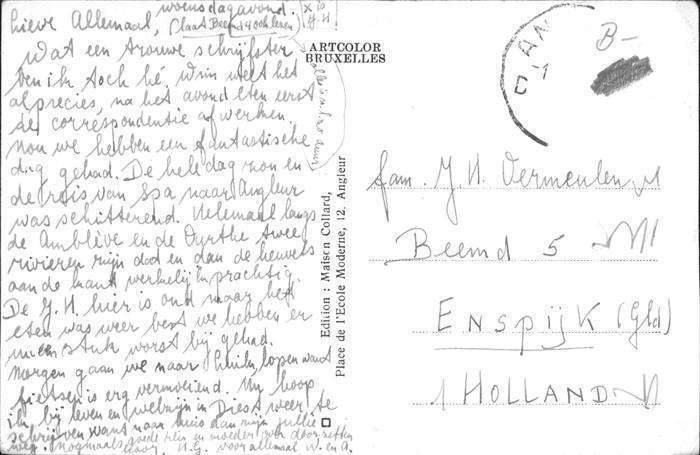 woensdagavond. X is J.H
Lieve Allemaal, (laat Beemd 4 ook lezen)
Wat een trouwe schrijfster
ben ik toch hé. Wim weet het
al precies, na het avondeten eerst
de correspondentie afwerken.
Nou we hebben een fantastische
dag gehad. De hele dag zon en
de reis van Spa naar Angleur
was schitterend. Helemaal langs
de Amblève en de Ourthe twee
rivieren zijn dat en dan de heuvels
aan de kant werkelijk prachtig.
De J.H. hier is oud maar het
eten was weer best we hebben er
een stuk worst bij gehad.
Morgen gaan we naar Luik lopen want
fietsen is erg vermoeiend. Nu hoop
ik bij leven en welzijn in Diest weer te
schrijven want naar huis dan zijn jullie
weg. Nogmaals goede reis en moeder doorzetten
hoor. voor allemaal W. en A.
ARTCOLOR
BRUXELLES
Edition : Maison Collard,
Place de l'Ecole Moderne, 12, Angleur
AN
B-
fam. J. H. Vermeulen
Beemd 5
ENSPIJK (Gld)
HOLLAND